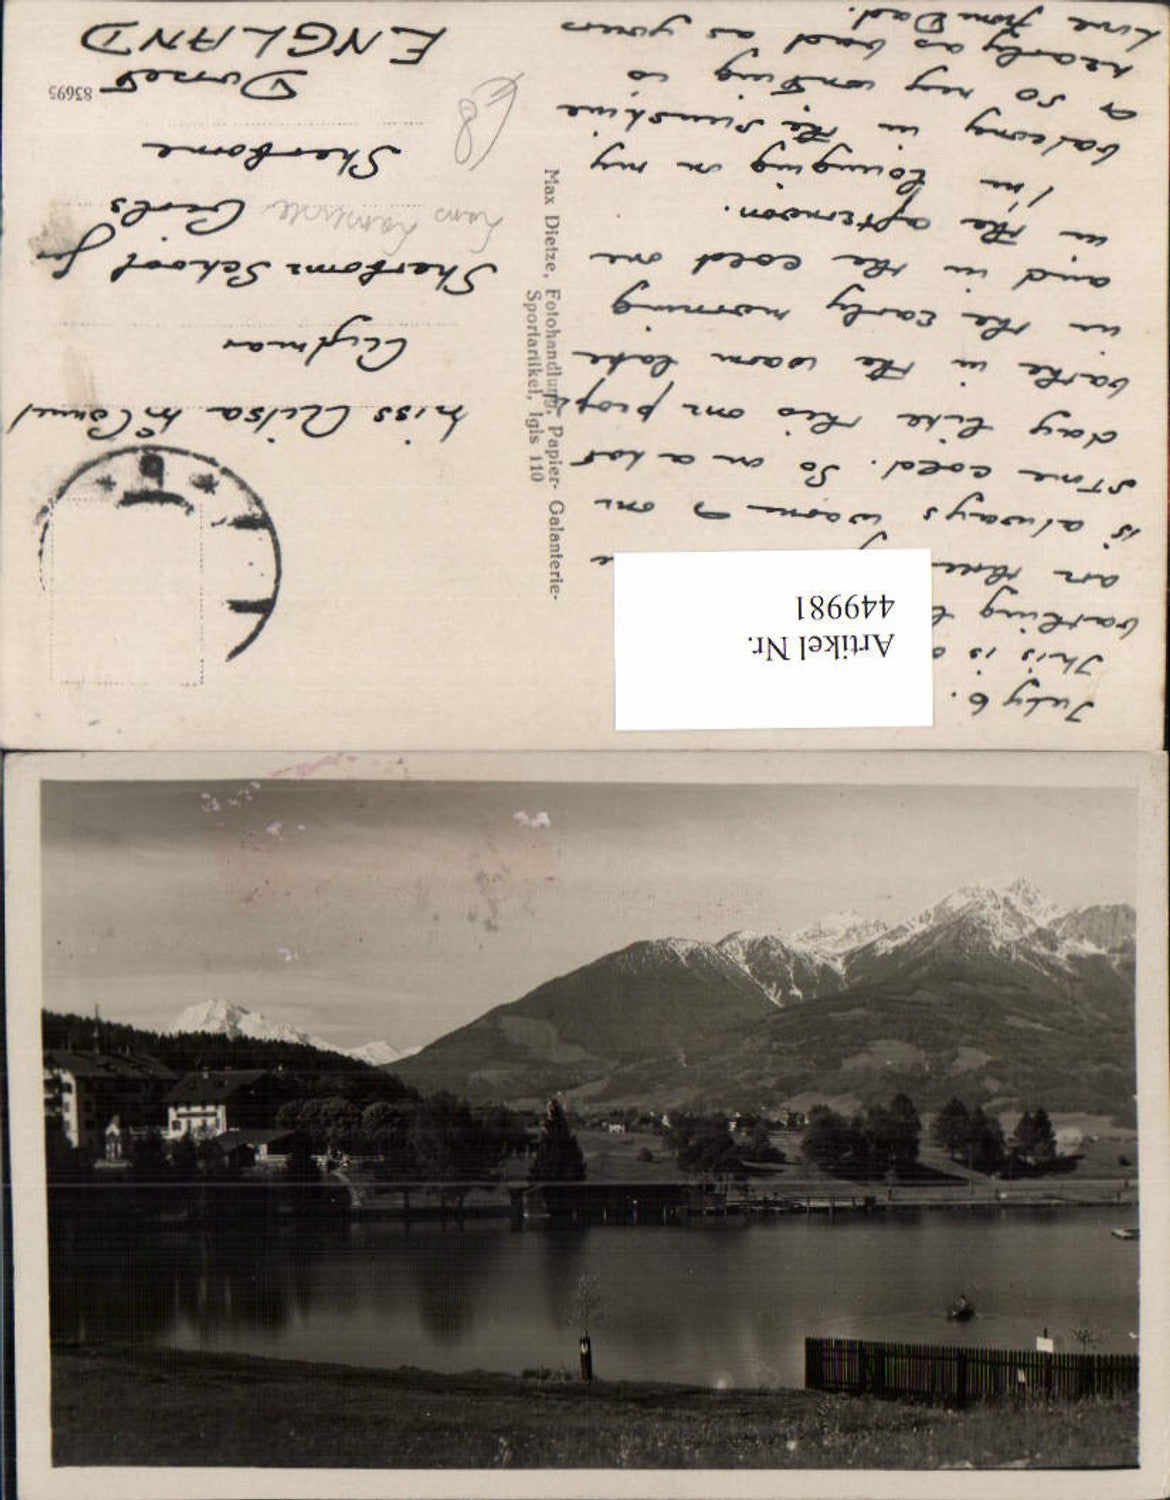 July 6.
This is
bathing
an three
is always warm & one
stone cold. So on a hot
day like this one people
bathe in the warm lake
in the early morning
and in the cold one
in the afternoon.
I'm lounging on my
balcony in the sunshine
& so my writing is
nearly as bad as yours
Love from Dad.
Artikel Nr.
449981
Max Dietze, Fotohandlung, Papier- Galanterie-
Sportartikel, Igls 110
Miss Ailsa McConnel
Aylmar
Sherborne School for
Girls
Sherborne
Dorset
ENGLAND
83695